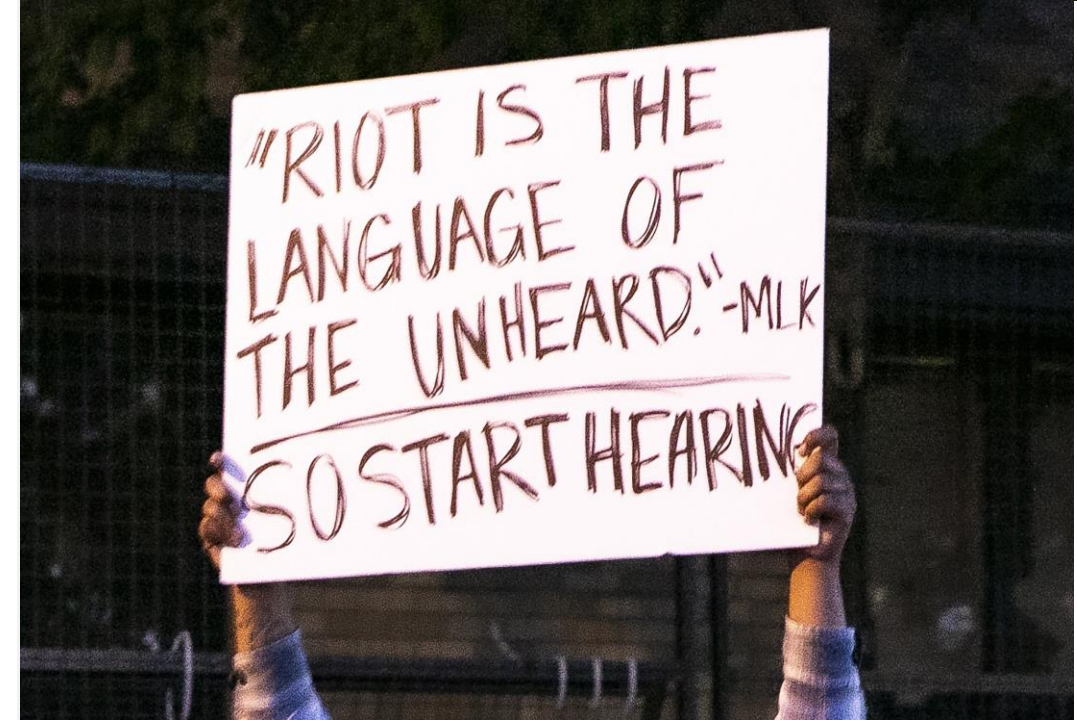 "RIOT IS THE
LANGUAGE OF
THE UNHEARD." -MLK
SO START HEARING